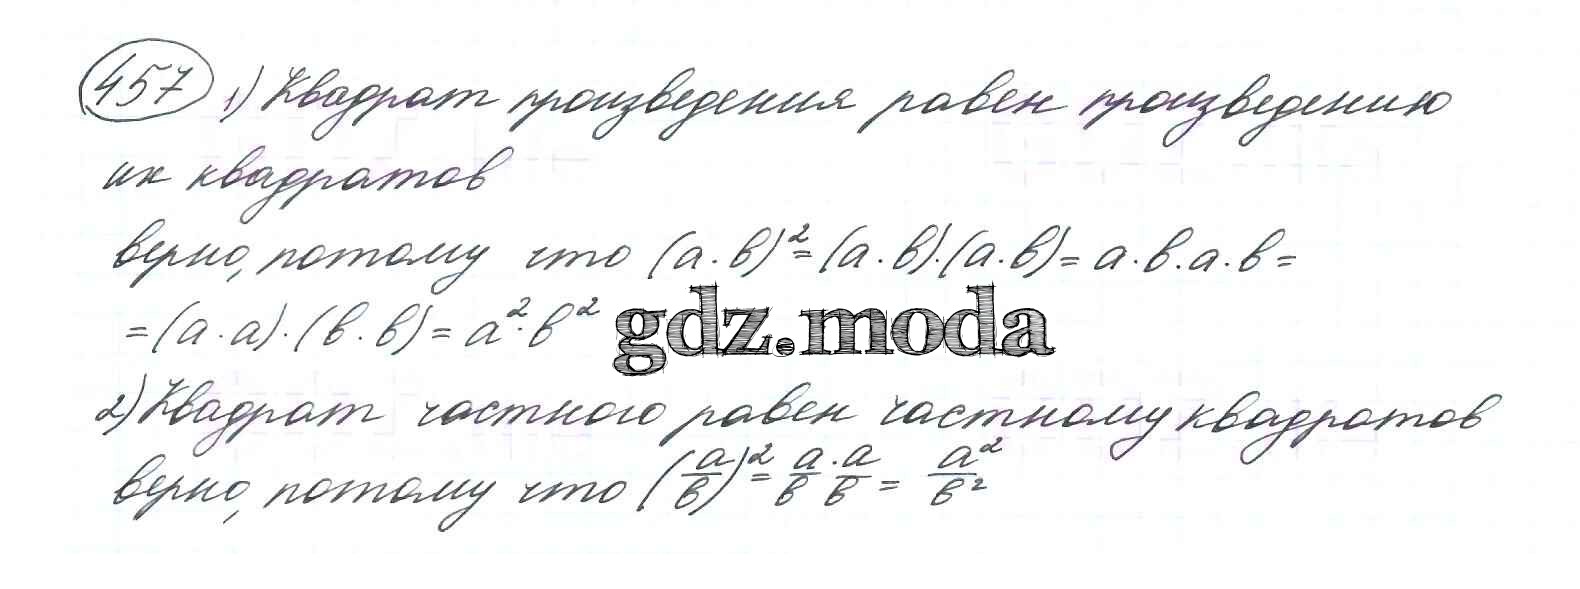 457 1) Квадрат произведения равен произведению
их квадратов
верно, потому что (а·в)²=(а·в)·(а·в)=а·в·а·в=
=(а·а)·(в·в)=а²·в²
gdz.moda
2) Квадрат частного равен частному квадратов
верно, потому что (а/в)²=а/в·а/в=а²/в²